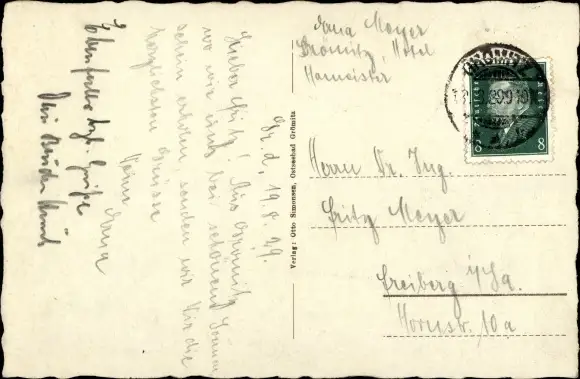 Anna Meyer
Grömitz, Hotel
Hameister
Herrn Dr. Ing.
Fritz Meyer
Freiberg i/Sa.
Hornstr. 10a
Verlag: Otto Simonsen, Ostseebad Grömitz
Gr. d. 19.8.29.
Lieber Fritz! Aus Grömitz,
wo wir uns bei schönem Sonnen
schein erholen, senden wir Dir die
herzlichsten Grüsse
Deine Anna
Ebenfalls hzl. Grüße
Dein Bruder
8 8